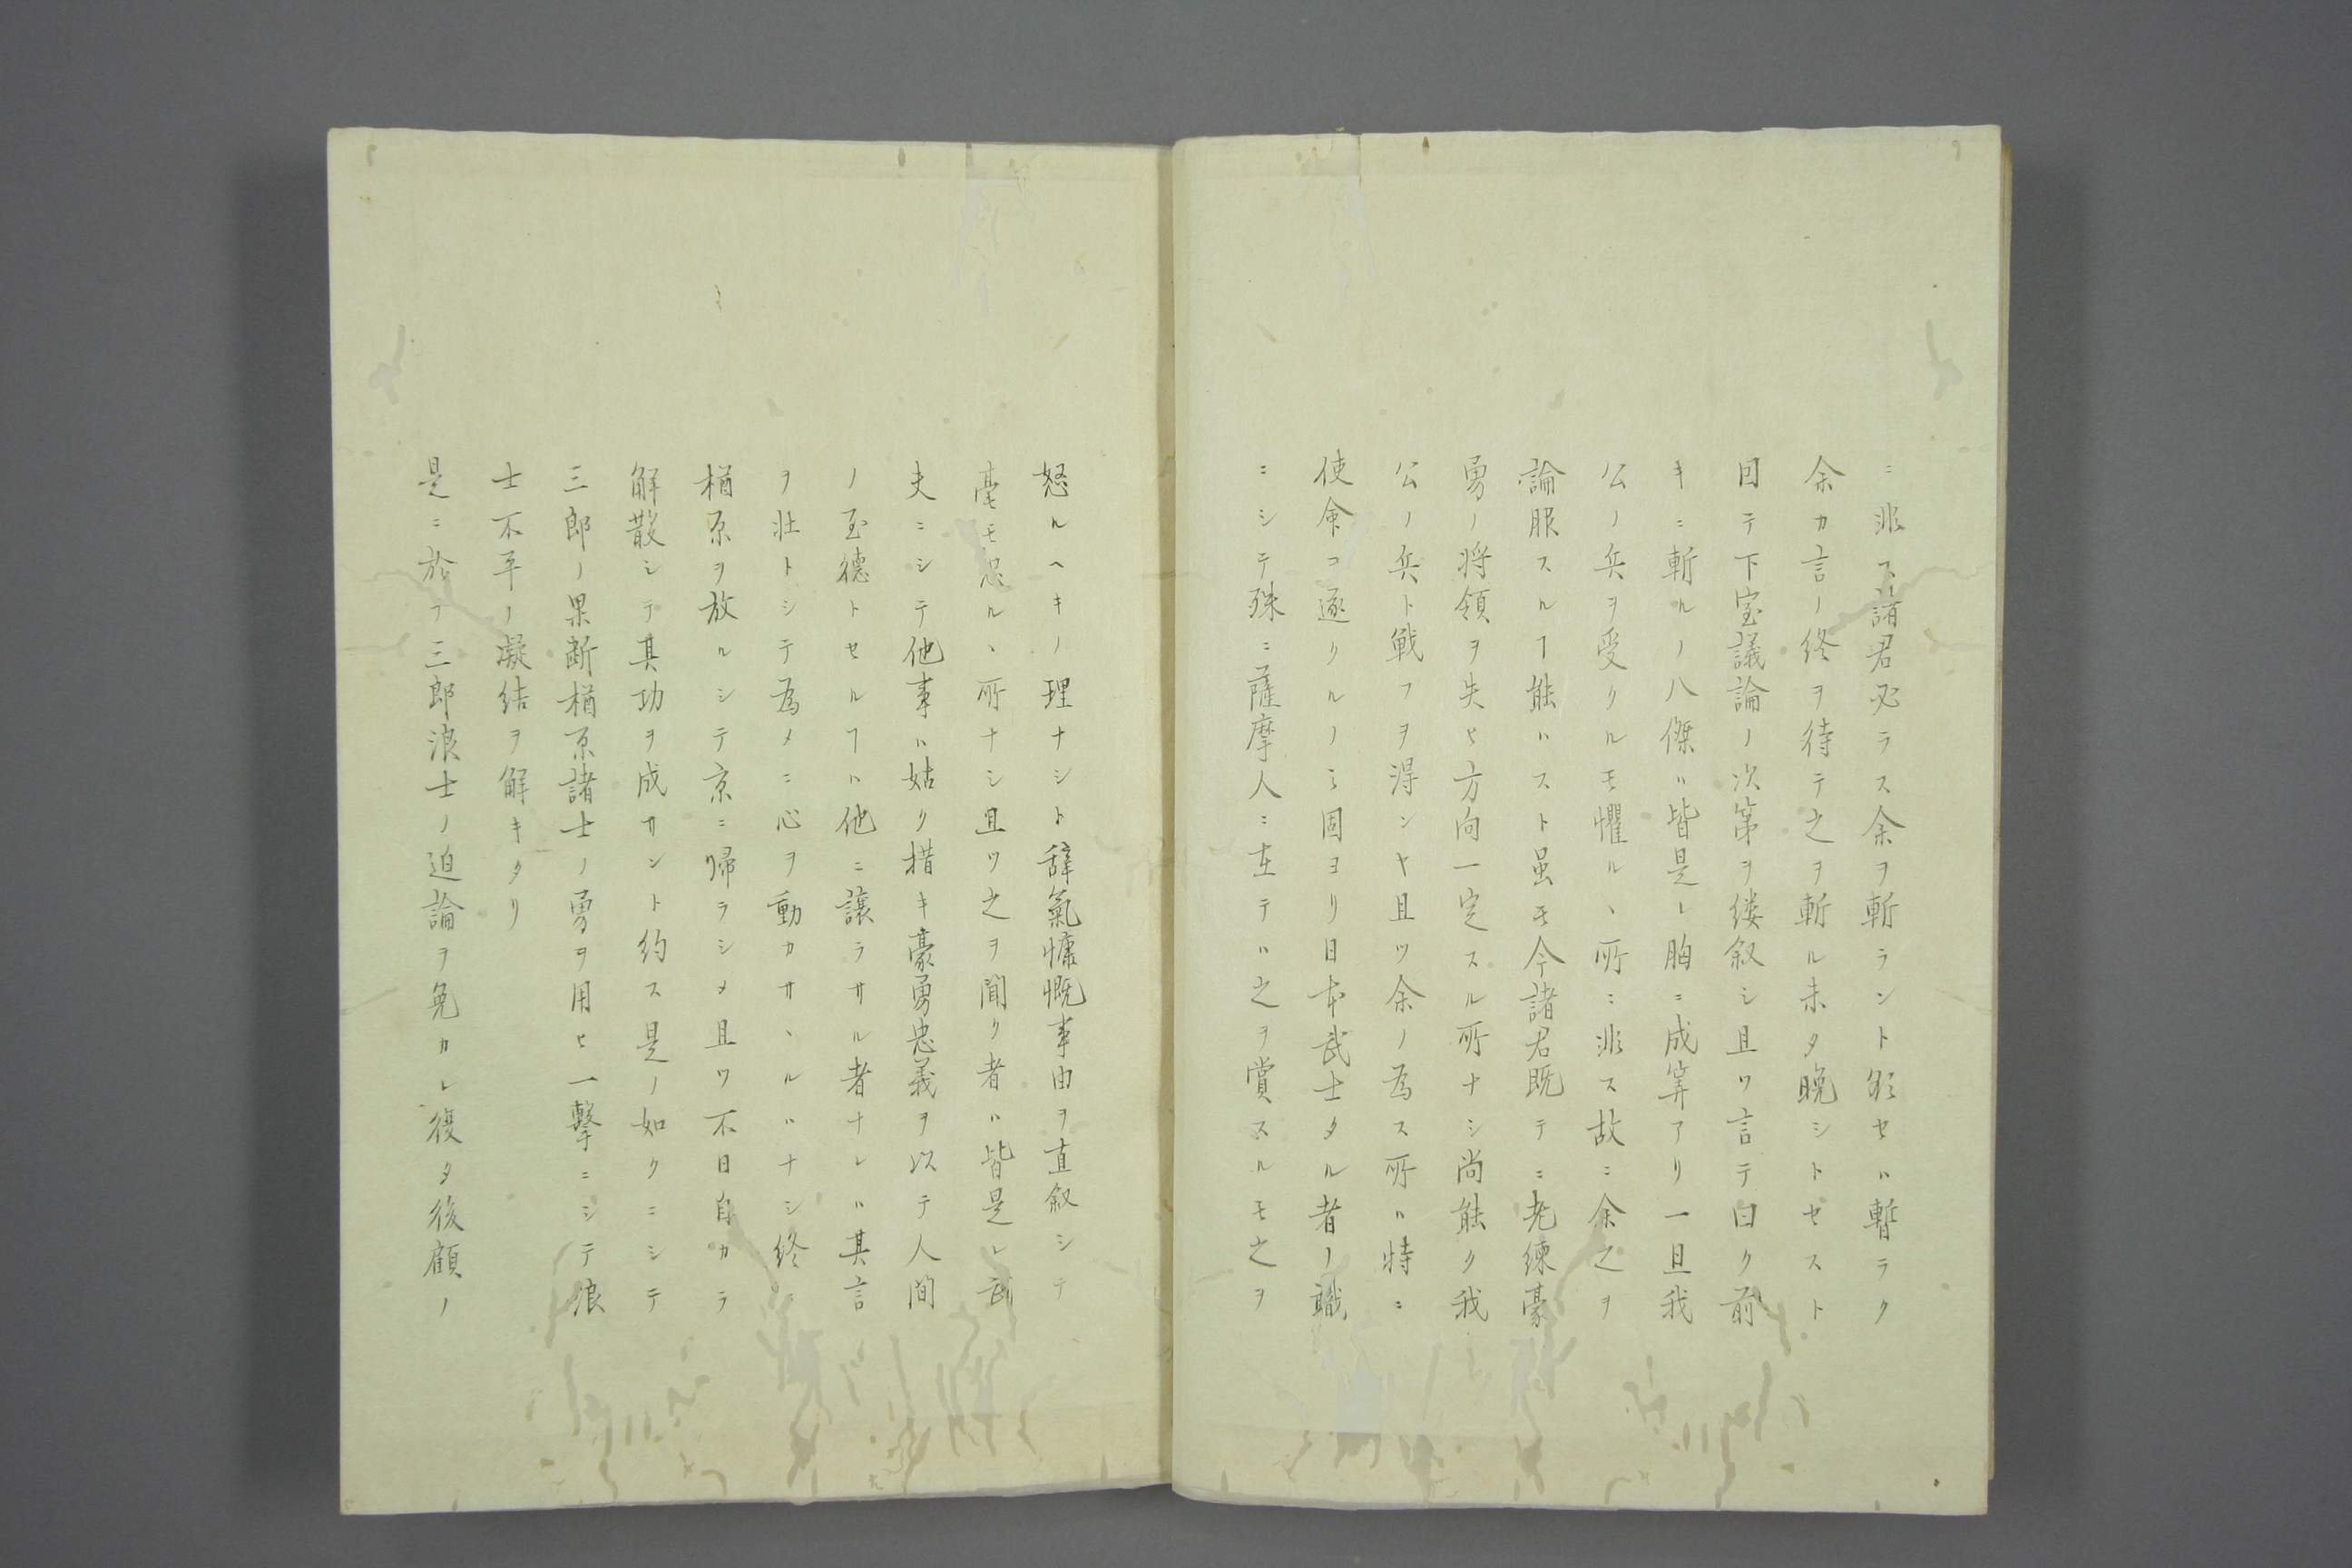 ニ非ス諸君必ラス余ヲ斬ラント欲セハ暫ラク
余カ言ノ終ヲ待テ之ヲ斬ル未タ晩シトセスト
因テ下宝議論ノ次第ヲ縷叙シ且ツ言テ曰ク前
キニ斬ルノ八傑ハ皆是レ胸ニ成筭アリ一旦我
公ノ兵ヲ受クルモ懼ルヽ所ニ非ス故ニ余之ヲ
論服スルヿ能ハスト虽モ今諸君既テニ老練豪
勇ノ将領ヲ失ヒ方向一定スル所ナシ尚能ク我
公ノ兵ト戦フヲ得ンヤ且ツ余ノ為ス所ハ特ニ
使命ヲ遂クルノミ固ヨリ日本武士タル者ノ職
ニシテ殊ニ薩摩人ニ在テハ之ヲ賞スルモ之ヲ
怒ルヘキノ理ナシト辞氣慷慨事由ヲ直叙シテ
毫モ忌ルヽ所ナシ且ツ之ヲ聞ク者ハ皆是レ武
夫ニシテ他事ハ姑ク措キ豪勇忠義ヲ以テ人間
ノ至徳トセルヿハ他ニ譲ラサル者ナレハ其言
ヲ壮トシテ為メニ心ヲ動カサヽルハナシ終ニ
楢原ヲ放ルシテ京ニ帰ラシメ且ツ不日自カラ
解散シテ其功ヲ成サント約ス是ノ如クニシテ
三郎ノ果断楢原諸士ノ勇ヲ用ヒ一撃ニシテ浪
士不平ノ凝結ヲ解キタリ
是ニ於テ三郎浪士ノ迫論ヲ免カレ復タ後顧ノ